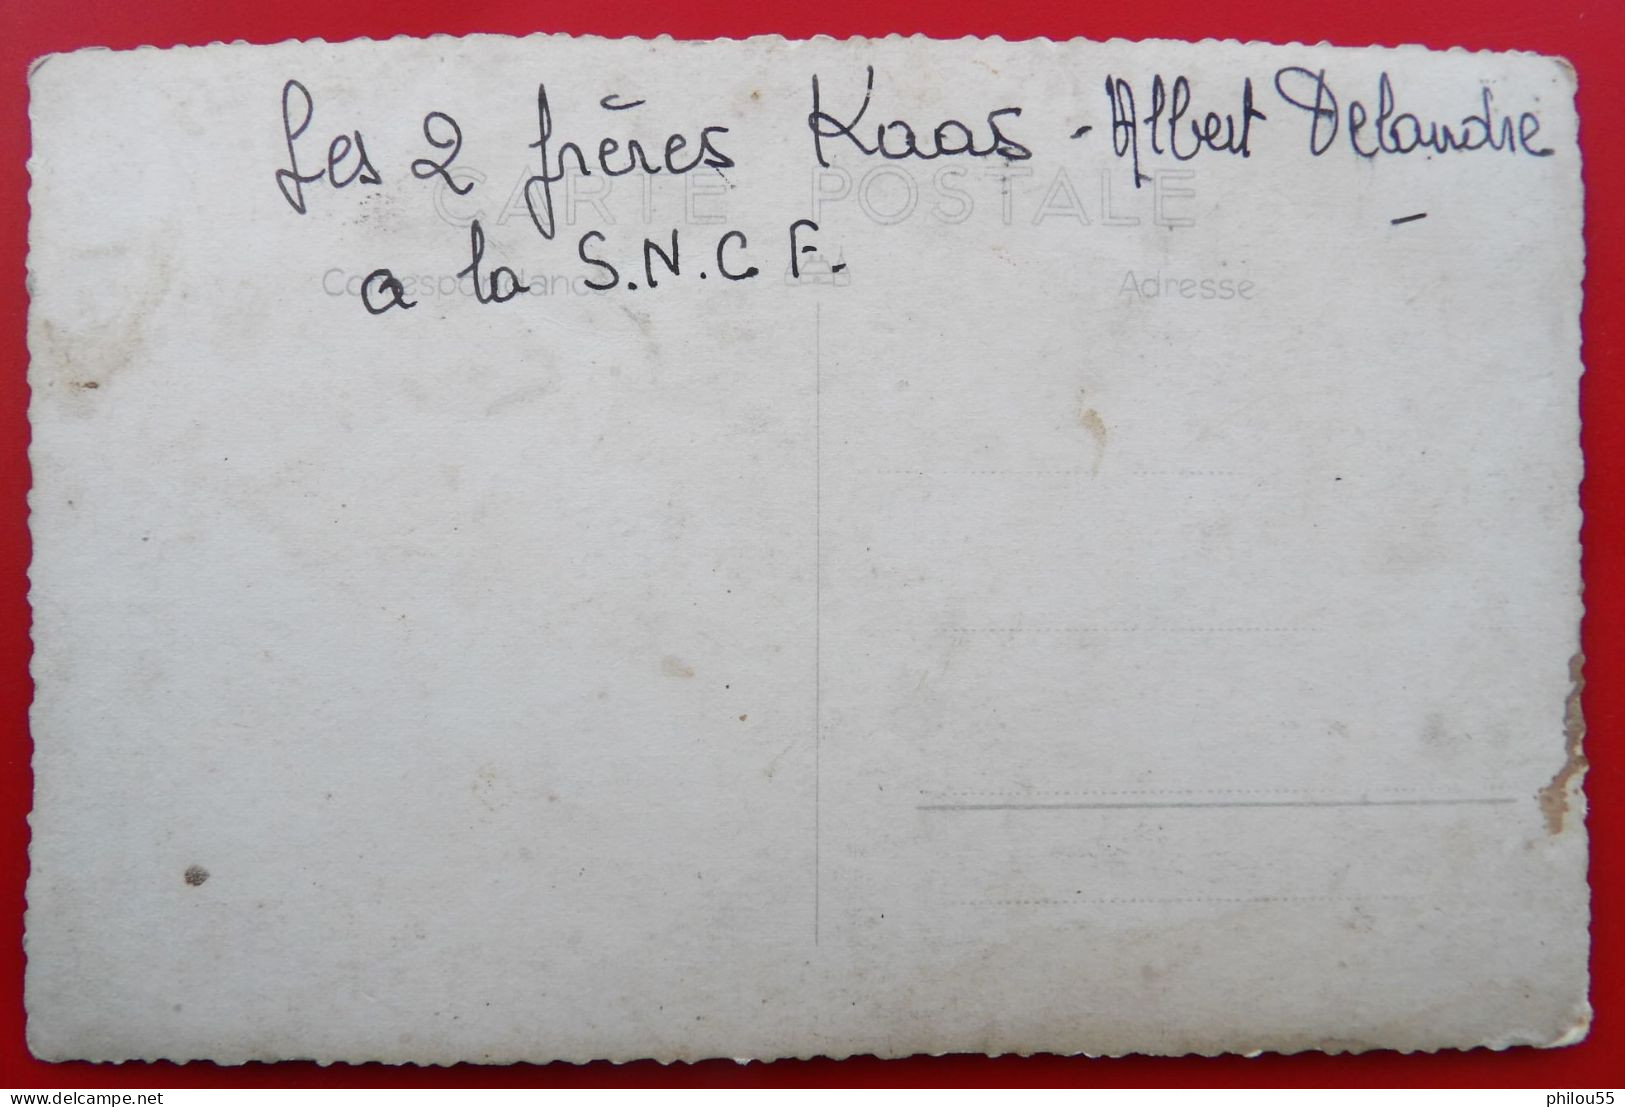 Les 2 frères Kaas - Albert Delandre -
CARTE POSTALE
a la S.N.C.F.
Correspondance Adresse
delcampe.net philou55